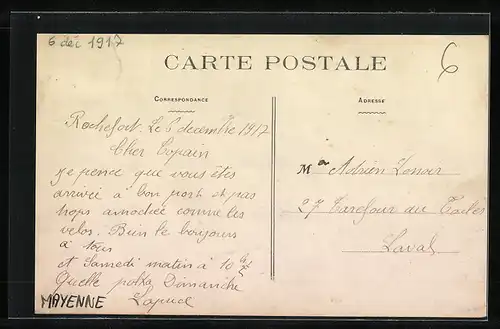 6 déc 1917
6
CARTE POSTALE
CORRESPONDANCE
ADRESSE
Rochefort. Le 6 decembre 1917
Cher Copain
je pence que vous êtes
arrivée a bon port et pas
trops amochée comme les
velos. Bien le bonjours
à tous
et Samedi matin à 10 h 1/2
Quelle polka Dimanche
Lapuce
MAYENNE
Mr Adrien
27 Carefour au Toiles
Laval